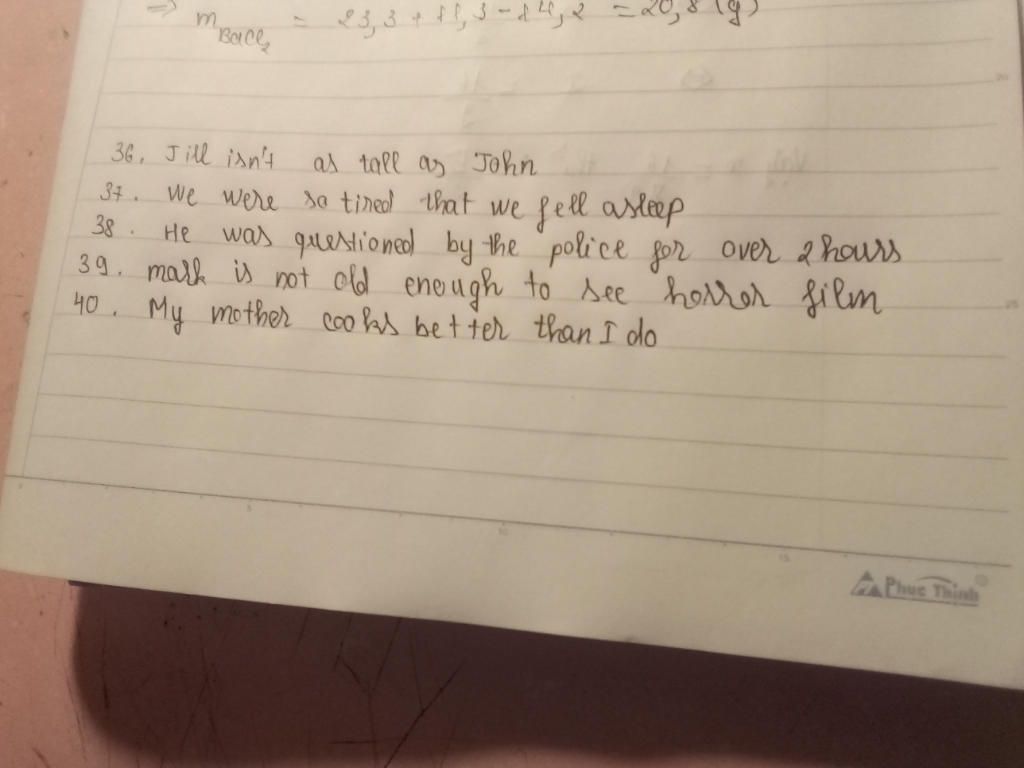 ⇒ m BaCl₂ = 23,3 + 11,3 - 14,2 = 20,8 (g)
36. Jill isn't as tall as John
37. We were so tired that we fell asleep
38. He was questioned by the police for over 2 hours
39. mark is not old enough to see horror film
40. My mother cooks better than I do
Phuc Thinh